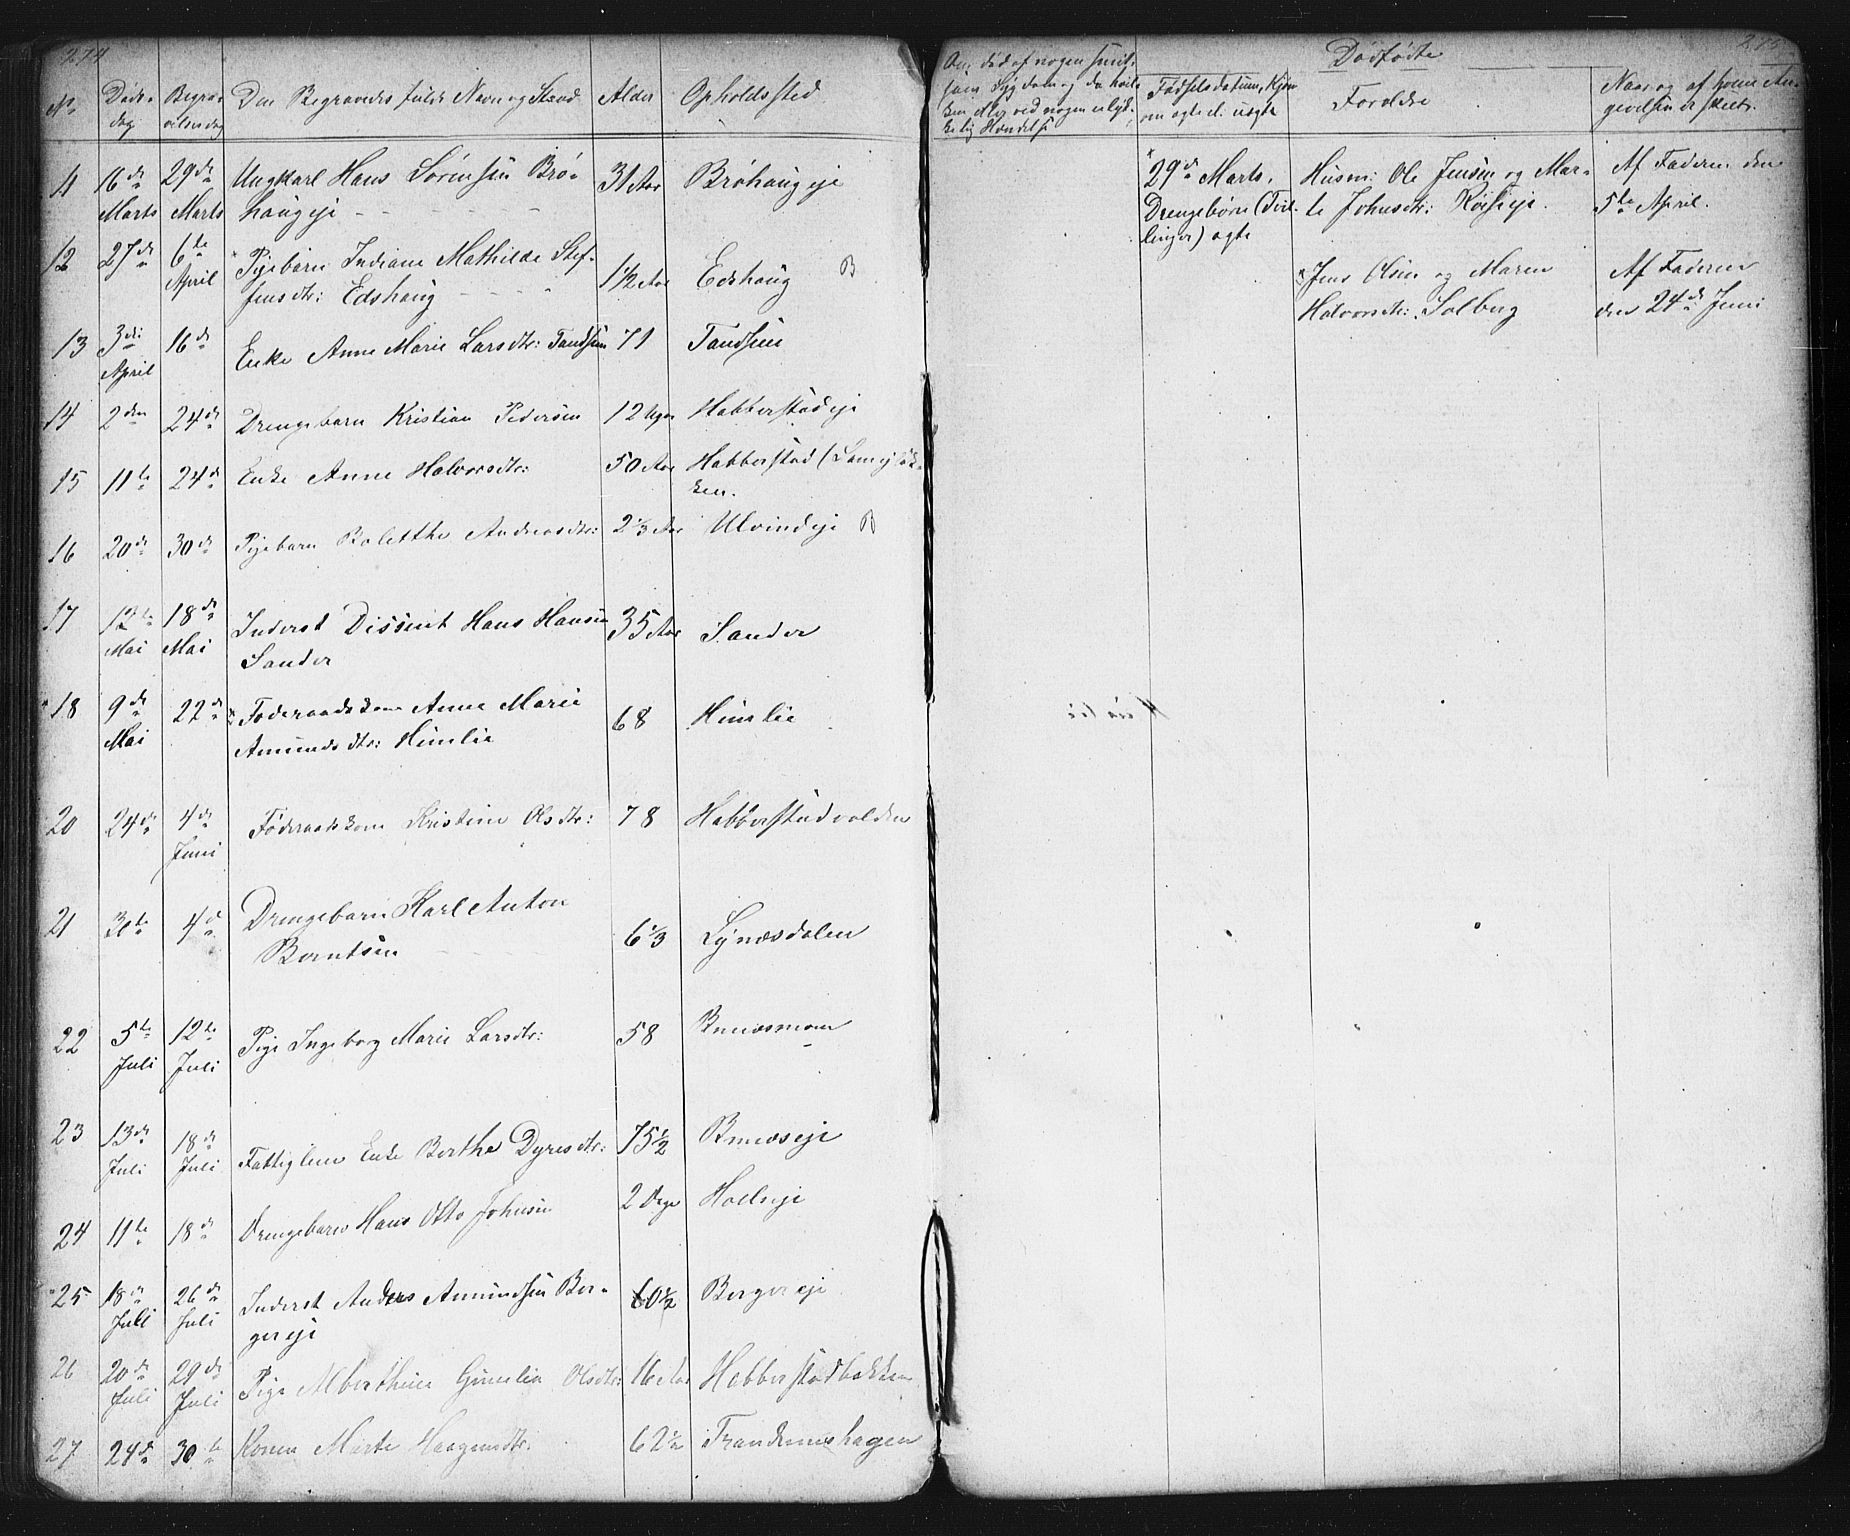 274
No Døds-dag Begra-velsesdag Den Begravedes fulde Navn og Stand Alder Opholdssted
11 16de Marts 29de Marts Ungkarl Hans Sørensen Brø-
haugeje 31 Aar Brøhaugeje
12 27de 6te April Pigebarn Indiane Mathilde Stef-
fensdtr: Edshaug 1½ Aar Edshaug B
13 3die April 16de Enke Anne Marie Larsdtr: Tandsen 71 Tandsen
14 2den 24de Drengebarn Kristian Pedersen 12 Uger Habberstadeje
15 11te 24de Enke Anne Halvorsdtr: 50 Aar Habberstad
ken.
16 20de 30de Pigebarn Bolette Andreasdtr: 2⅓ Aar Ulvindeje B
17 12te Mai 18de Mai Inderst Dissent Hans Hansen
Sander 35 Aar Sander
18 9de Mai 22de Føderaadskone Anne Marie
Amundsdtr: Himlie 68 Himlie
20 24de 4de Juni Føderaadskone Kristine Olsdtr: 78 Habberstadvolden
21 31te 4de Drengebarn Karl Anton
Berntsen 6⅓ Lynæsdalen
22 5te Juli 12te Juli Pige Ingeborg Marie Larsdtr: 58
23 13de Juli 18de Juli Fattiglem Enke Berthe Dyresdtr: 75½
24 11te 18de Drengebarn Hans Otto Johnsen 2 Dage Holseje
25 18de Juli 26de Juli Inderst Anders Amundsen Ber-
gereje 60½ Bergereje
26 20de Juli 29de Juli Pige Alberthine Gunelia Olsdtr: 16 Aar Habberstadbakken
27 24de 30te Konen Marte Haagensdtr. 62½
275
Om død af nogen smit-
som Sygdom og da hvil-
ken eller ved nogen ulyk-
kelig Hændelse
Dødfødte
Fødselsdatum, Kjøn
om ægte el. uægte
Forældre
Naar og af hvem An-
givelsen er skeet.
29de Marts.
Drengebørn (Tvil-
linger) ægte
Husm: Ole Jensen og Mar-
te Johnsdtr: Røiseje.
Af Faderen den
5te April.
Jens Olsen og Maren
Halvorsdtr: Solberg
Af Faderen
den 24de Juni